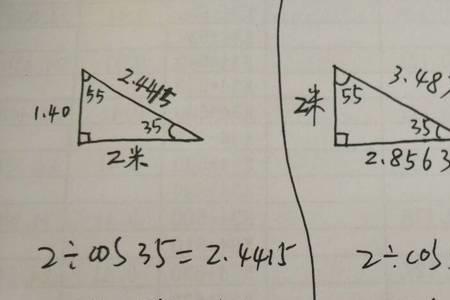 2.4415
55
1.40
35
2米
2÷cos35=2.4415
3.48
55
2米
35
2.8563
2÷cos